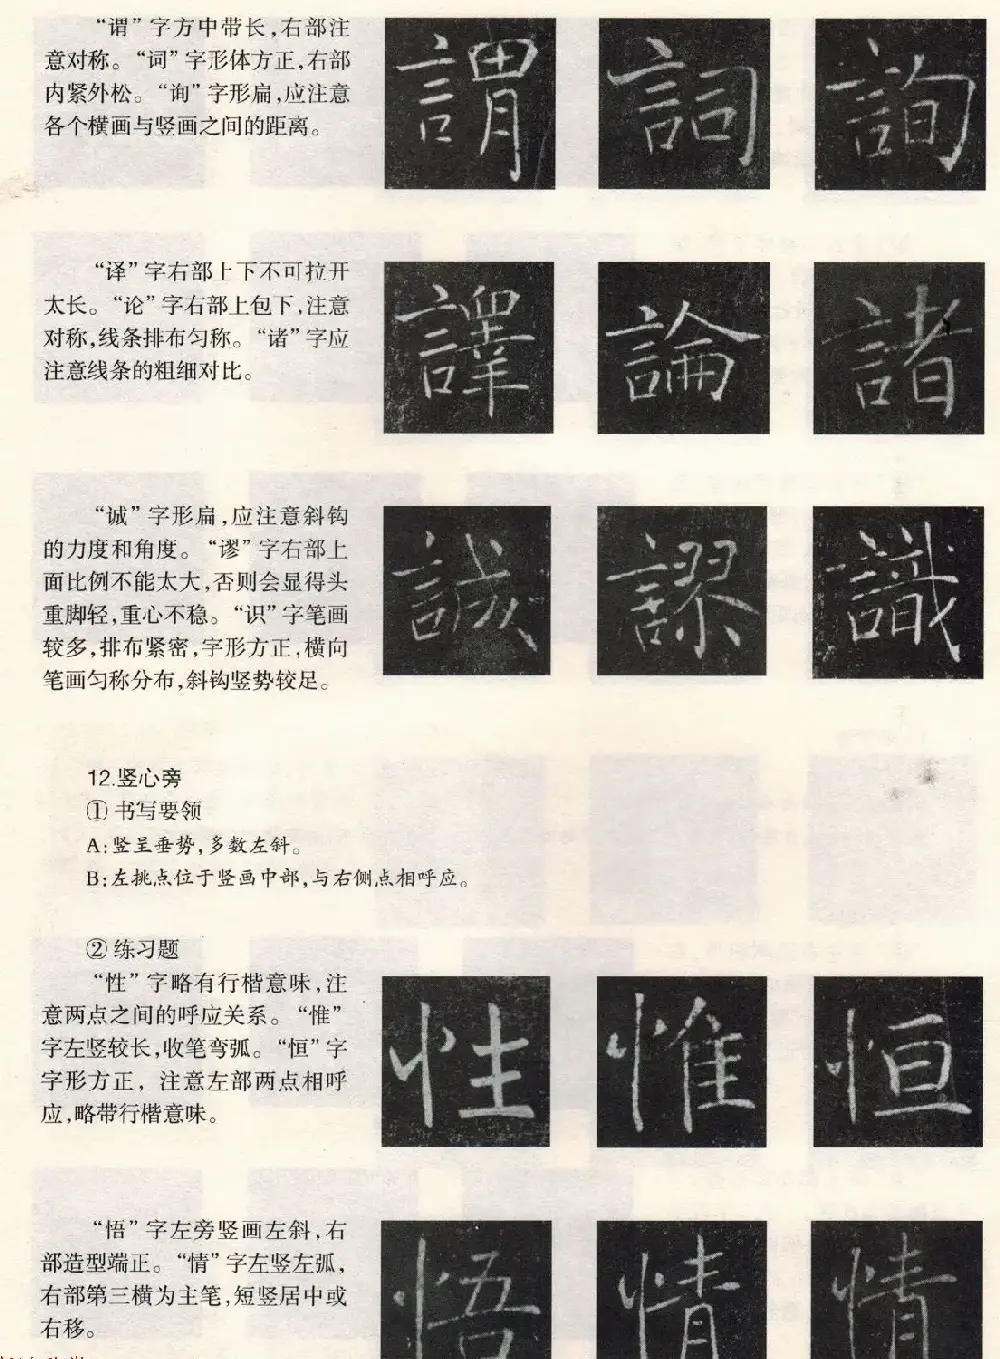 “谓”字方中带长，右部注
意对称。“词”字形体方正，右部
内紧外松。“询”字形扁，应注意
各个横画与竖画之间的距离。
謂 詞 詢
“译”字右部上下不可拉开
太长。“论”字右部上包下，注意
对称，线条排布匀称。“诸”字应
注意线条的粗细对比。
譯 論 諸
“诚”字形扁，应注意斜钩
的力度和角度。“谬”字右部上
面比例不能太大，否则会显得头
重脚轻，重心不稳。“识”字笔画
较多，排布紧密，字形方正，横向
笔画匀称分布，斜钩竖势较足。
誠 謬 識
12.竖心旁
① 书写要领
A：竖呈垂势，多数左斜。
B：左挑点位于竖画中部，与右侧点相呼应。
② 练习题
“性”字略有行楷意味，注
意两点之间的呼应关系。“惟”
字左竖较长，收笔弯弧。“恒”字
字形方正，注意左部两点相呼
应，略带行楷意味。
性 惟 恒
“悟”字左旁竖画左斜，右
部造型端正。“情”字左竖左弧，
右部第三横为主笔，短竖居中或
右移。
悟 情 情